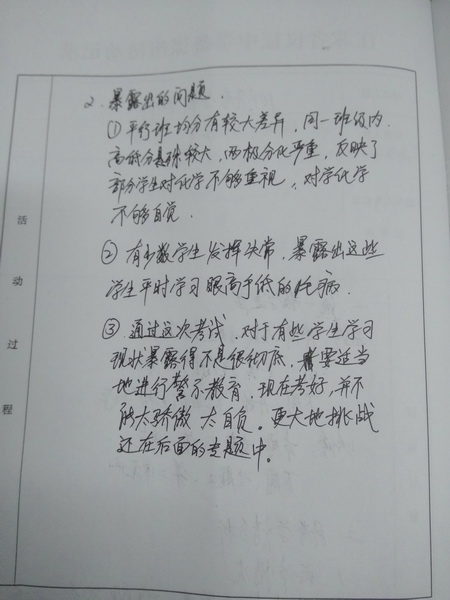 活动过程
2. 暴露出的问题.
① 平行班均分有较大差异, 同一班级内
高低分悬殊较大, 两极分化严重, 反映了
部分学生对化学不够重视, 对学化学
不够自觉.
② 有少数学生发挥失常, 暴露出这些
学生平时学习眼高手低的毛病.
③ 通过这次考试, 对于有些学生学习
现状暴露得不是很彻底, 需要适当
地进行警示教育, 现在考好, 并不
能大骄傲 太自负。更大地挑战
还在后面的专题中。